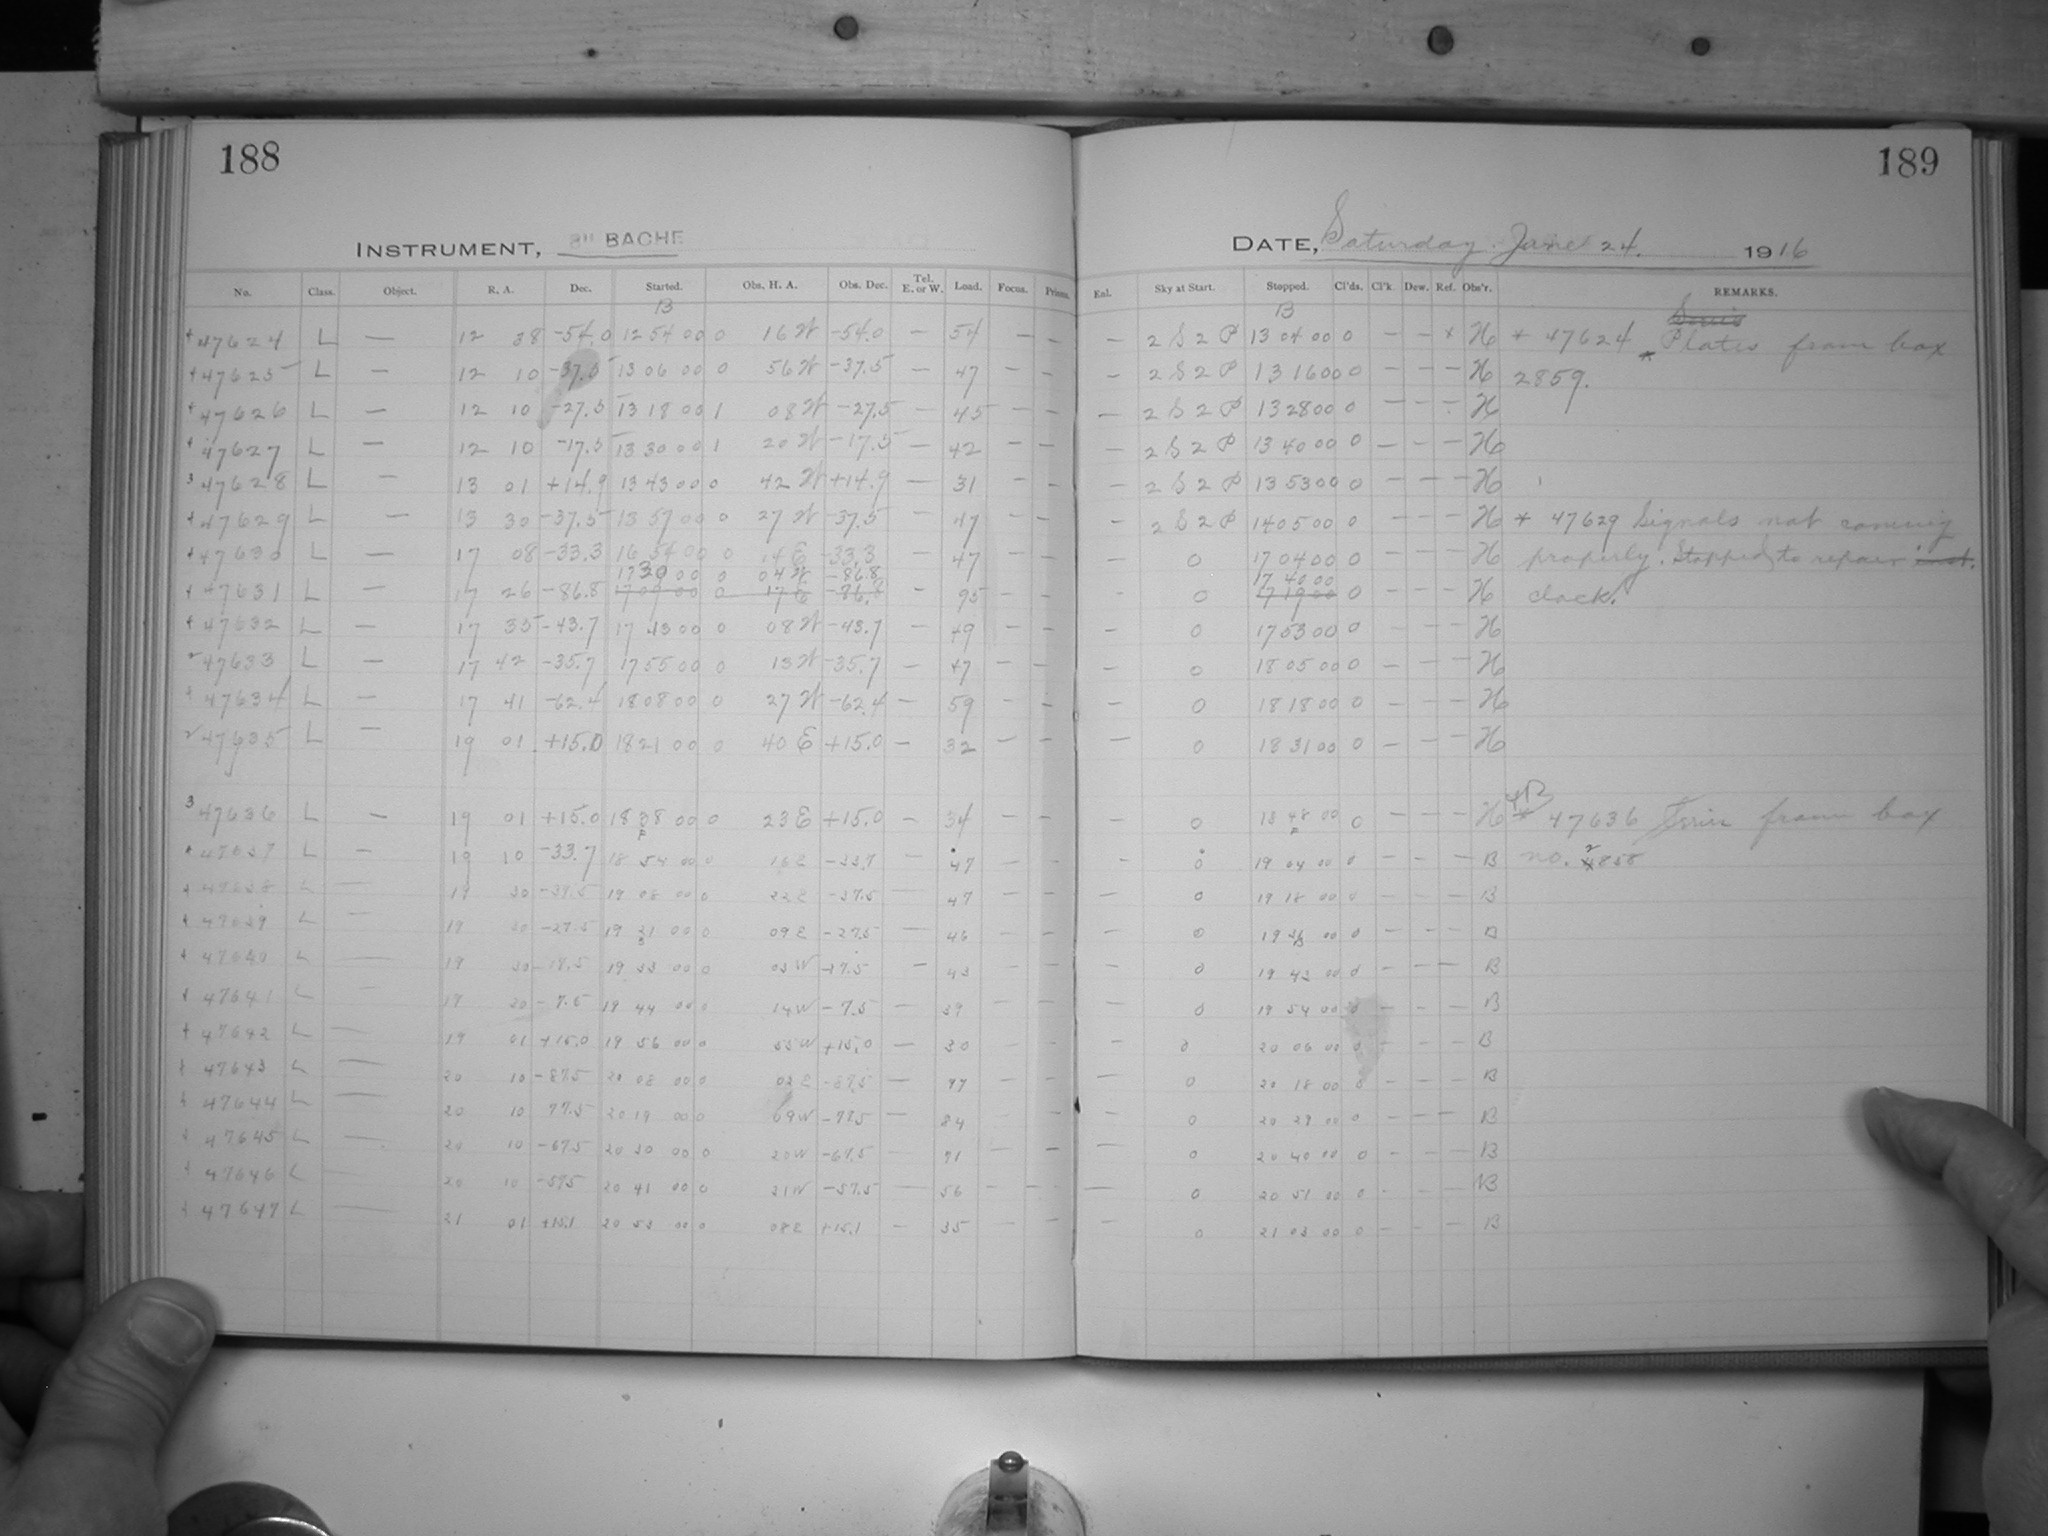 188
189
INSTRUMENT, 8" BACHE
DATE, Saturday June 24. 1916
No. Class. Object. R. A. Dec. Started. Obs. H. A. Obs. Dec. Tel. E. or W. Load. Focus. Prisms. Enl. Sky at Start. Stopped. Cl'ds. Cl'k Dew. Ref. Obs'r. REMARKS.
B B
47624 L — 12 38 -54.0 12 54 00 0 16 W -54.0 — 54 — — — 2 S 2 P 13 04 00 0 — — * H * 47624 * Plates from box
47625 L — 12 10 -37.5 13 06 00 0 56 W -37.5 — 47 — — — 2 S 2 P 13 16 00 0 — — — H 2859.
47626 L — 12 10 -27.5 13 18 00 1 08 W -27.5 — 45 — — — 2 S 2 P 13 28 00 0 — — — H
47627 L — 12 10 -17.5 13 30 00 1 20 W -17.5 — 42 — — — 2 S 2 P 13 40 00 0 — — — H
3 47628 L — 13 01 +14.9 13 43 00 0 42 W +14.9 — 31 — — — 2 S 2 P 13 53 00 0 — — — H
47629 L — 13 30 -37.5 13 57 00 0 27 W -37.5 — 47 — — — 2 S 2 P 14 05 00 0 — — — H * 47629 Signals not coming
47630 L — 17 08 -33.3 16 54 00 0 14 E -33.3 — 47 — — — 0 17 04 00 0 — — — H properly. Stopped to repair inst.
17 30 00 0 04 W -86.8 17 40 00
47631 L — 17 26 -86.8 17 09 00 0 17 E -86.8 — 95 — — — 0 17 19 00 0 — — — H clock.
47632 L — 17 35 -43.7 17 43 00 0 08 W -43.7 49 — — — 0 17 53 00 0 H
47633 L — 17 42 -35.7 17 55 00 0 13 W -35.7 — 47 — — — 0 18 05 00 0 — — — H
47634 L — 17 41 -62.4 18 08 00 0 27 W -62.4 — 59 — — — 0 18 18 00 0 — — — H
47635 L — 19 01 +15.0 18 21 00 0 40 E +15.0 — 32 — — — 0 18 31 00 0 — — — H
3 47636 L — 19 01 +15.0 18 38 00 0 23 E +15.0 — 34 — — 0 18 48 00 0 — — — H * 47636 from box
47637 L — 19 10 -33.7 18 54 00 0 16 E -33.7 — 47 — — 0 19 04 00 0 — — — B no. 2858
47638 L — 19 30 -37.5 19 08 00 0 22 E -37.5 — 47 — — — 0 19 18 00 0 — — — B
47639 L — 19 30 -27.5 19 21 00 0 09 E -27.5 — 46 — — — 0 19 00 0 — — — B
47640 L — 19 30 -17.5 19 33 00 0 03 W -17.5 — 43 — — — 0 19 43 00 0 — — — B
47641 L — 19 30 -7.5 19 44 00 0 14 W -7.5 — 39 — — — 0 19 54 00 0 — — — B
47642 L — 19 01 +15.0 19 56 00 0 55 W +15.0 — 30 — — — 0 20 06 00 0 — — — B
47643 L — 20 10 -87.5 20 08 00 0 02 E -87.5 — 97 — — — 0 20 18 00 0 — — — B
47644 L — 20 10 77.5 20 19 00 0 09 W -77.5 — 84 — — — 0 20 29 00 0 — — — B
47645 L — 20 10 -67.5 20 30 00 0 20 W -67.5 — 71 — — — 0 20 40 00 0 — — — B
47646 L — 20 10 -57.5 20 41 00 0 31 W -57.5 — 56 — — — 0 20 51 00 0 — — B
47647 L — 21 01 +15.1 20 53 00 0 08 E +15.1 — 35 — — — 0 21 03 00 0 — — — B